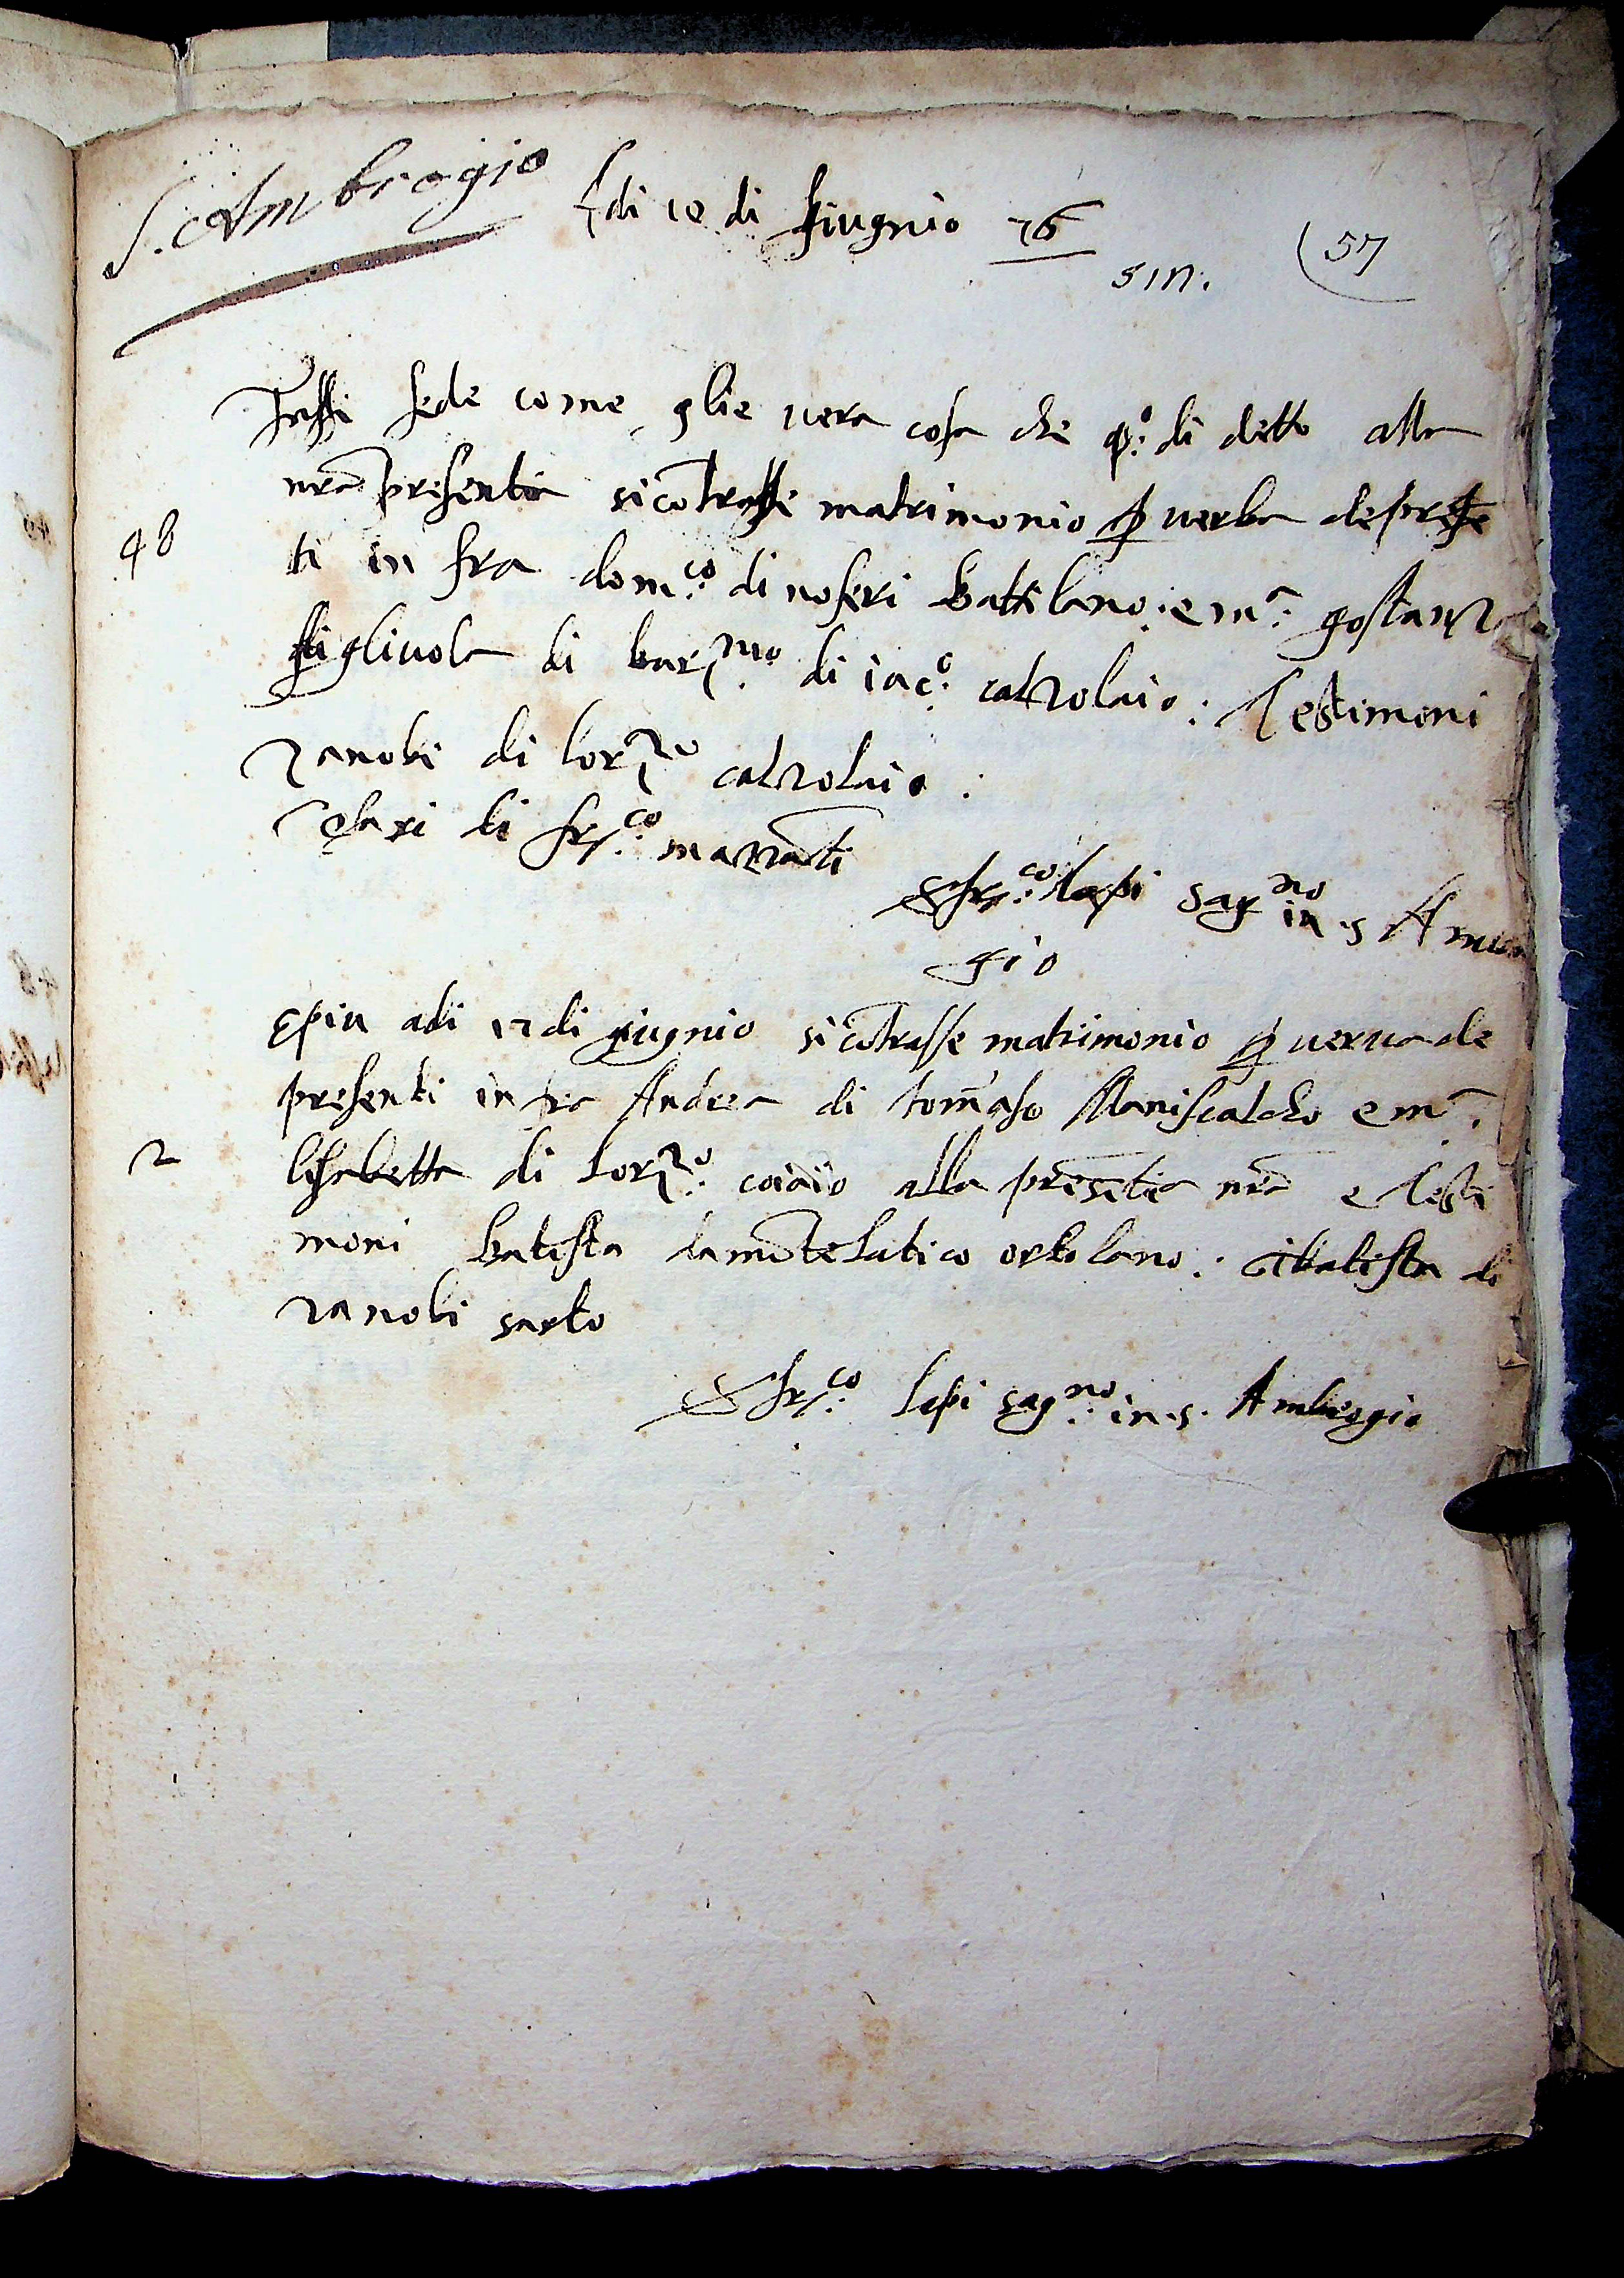 S. Ambrogio
Adi 10 di giugnio 76
sin. 57
Fassi fede come glie vera cosa che qo. di detto alla
nrã presentia si cõtrasse matrimonio p verba de prese
48
ti in fra domco. di noferi battilano: e ma. gostanza
figliuola di barmo. di iaco. calzolaio: Testimoni
zanobi di lorzo calzolaio:
di frco. mazzãti
frco. lapi sagno in .s Am
gio
E piu adi 17 di giugnio si cõtrasse matrimonio p verva de
presenti in fra Andrea di tomaso Maniscalcho e ma.
2
lisabetta di Lorzo. coiaio alla presẽtia nrã e Testi
moni batista da mõte latico ortolano: batista di
zanobi sarto
frco. lapi sagno. in .s. Ambrogio